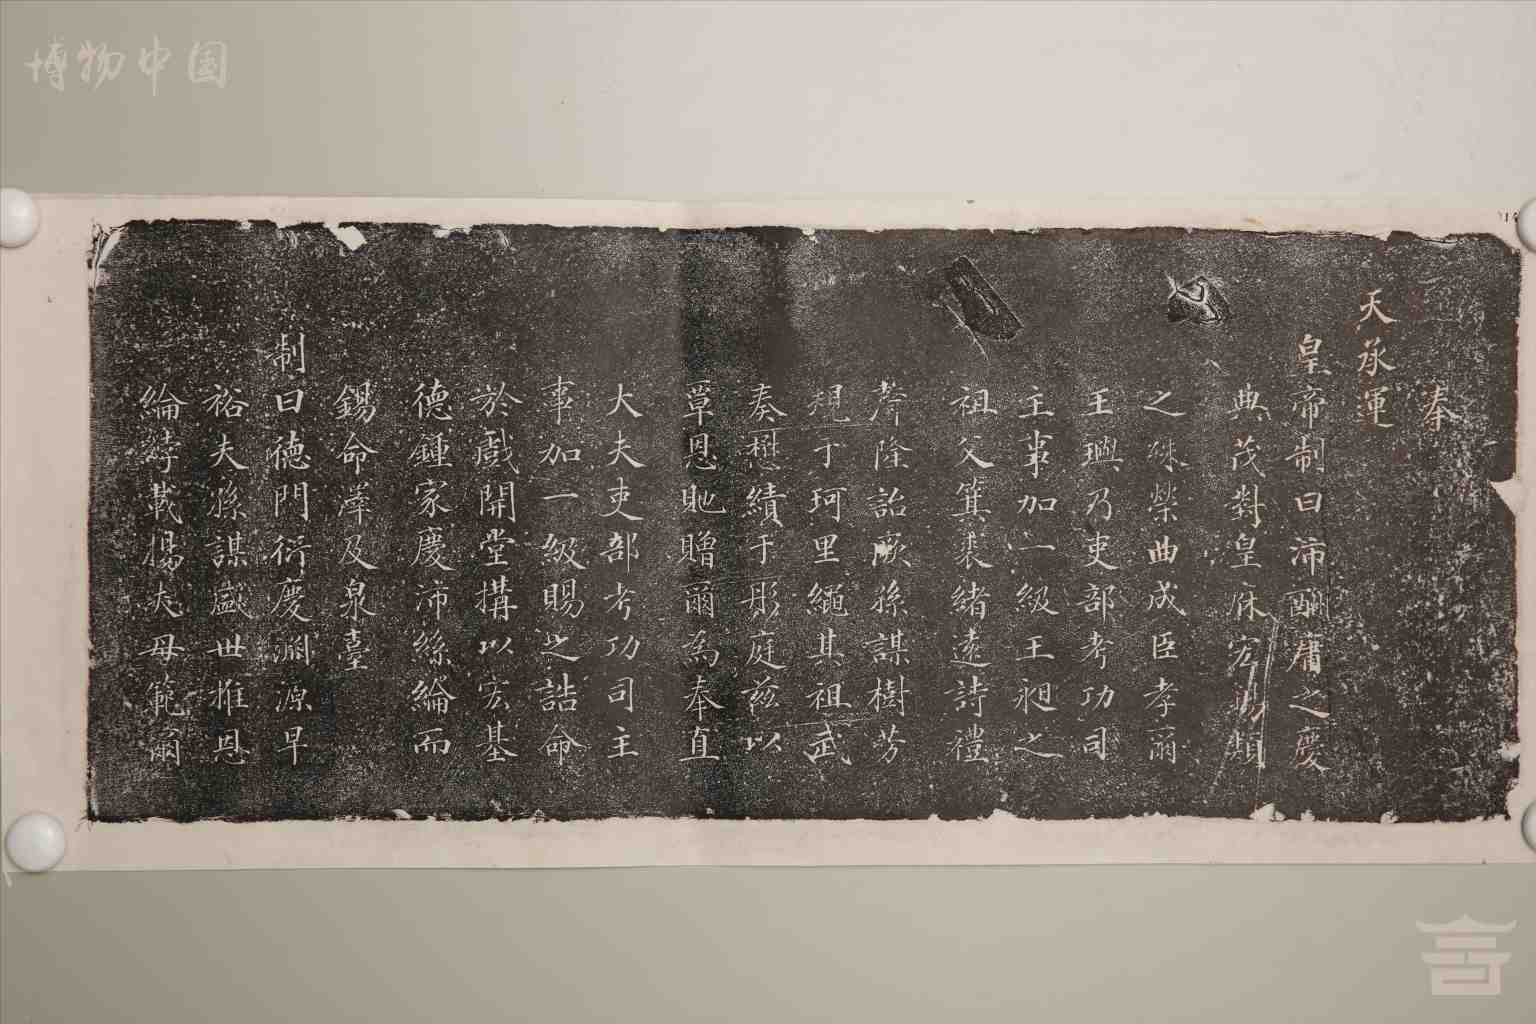 博物中国
奉
天承運
皇帝制曰沛酬庸之慶
典茂對皇庥宏錫類
之殊榮曲成臣孝爾
王璵乃吏部考功司
主事加一級王昶之
祖父箕裘緒遠詩禮
聲隆詒厥孫謀樹芳
規于珂里繩其祖武
奏懋績于彤庭茲以
覃恩貤贈爾為奉直
大夫吏部考功司主
事加一級賜之誥命
於戲開堂搆以宏基
德鍾家慶沛絲綸而
錫命澤及泉臺
制曰德門衍慶淵源早
裕夫孫謀盛世推恩
綸綍載揚夫母範爾